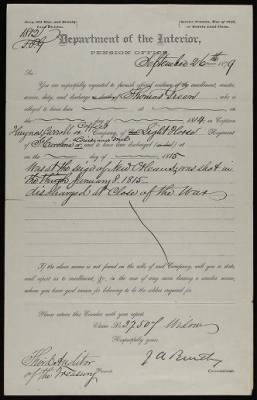 Department of the Interior,
PENSION OFFICE,
September 26th 1879
Sir:
You are respectfully requested to furnish official evidence of the enrollment, muster,
service, duty, and discharge or death of Thomas Green who
is alleged to have been
day of 1814 in Captain
Company, of Light Horse Regiment
of and to have been discharged
on the day of 1815
Was at the siege of New Orleans, was shot in
the thigh January 8. 1815
discharged at Close of the War
If the above name is not found on the rolls of said Company, will you so state,
and report as to enrollment, &c., in the case of any man bearing a similar name,
whom you have good reason for believing to be the soldier inquired for.
Please return this Circular with your report.
Claim No. 27507 Widow
Respectfully yours,
Third Auditor
of the Treasury
Commissioner.